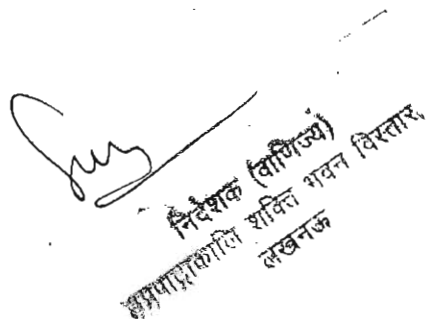 निदेशक (वाणिज्य)
उ०प्र०पा०ट्रा०का०लि० शक्ति भवन विस्तार,
लखनऊ